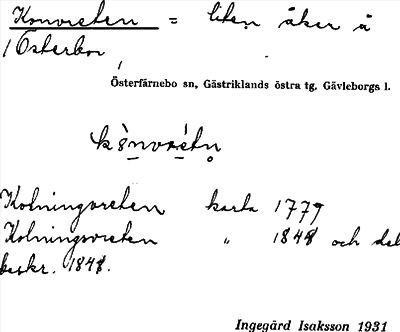 Konvreten = liten åker å
/ Österbor
Österfärnebo sn, Gästriklands östra tg. Gävleborgs l.
Kolningvreten karta 1779
Kolningsvreten " 1848 och del
beskr. 1848.
Ingegärd Isaksson 1931